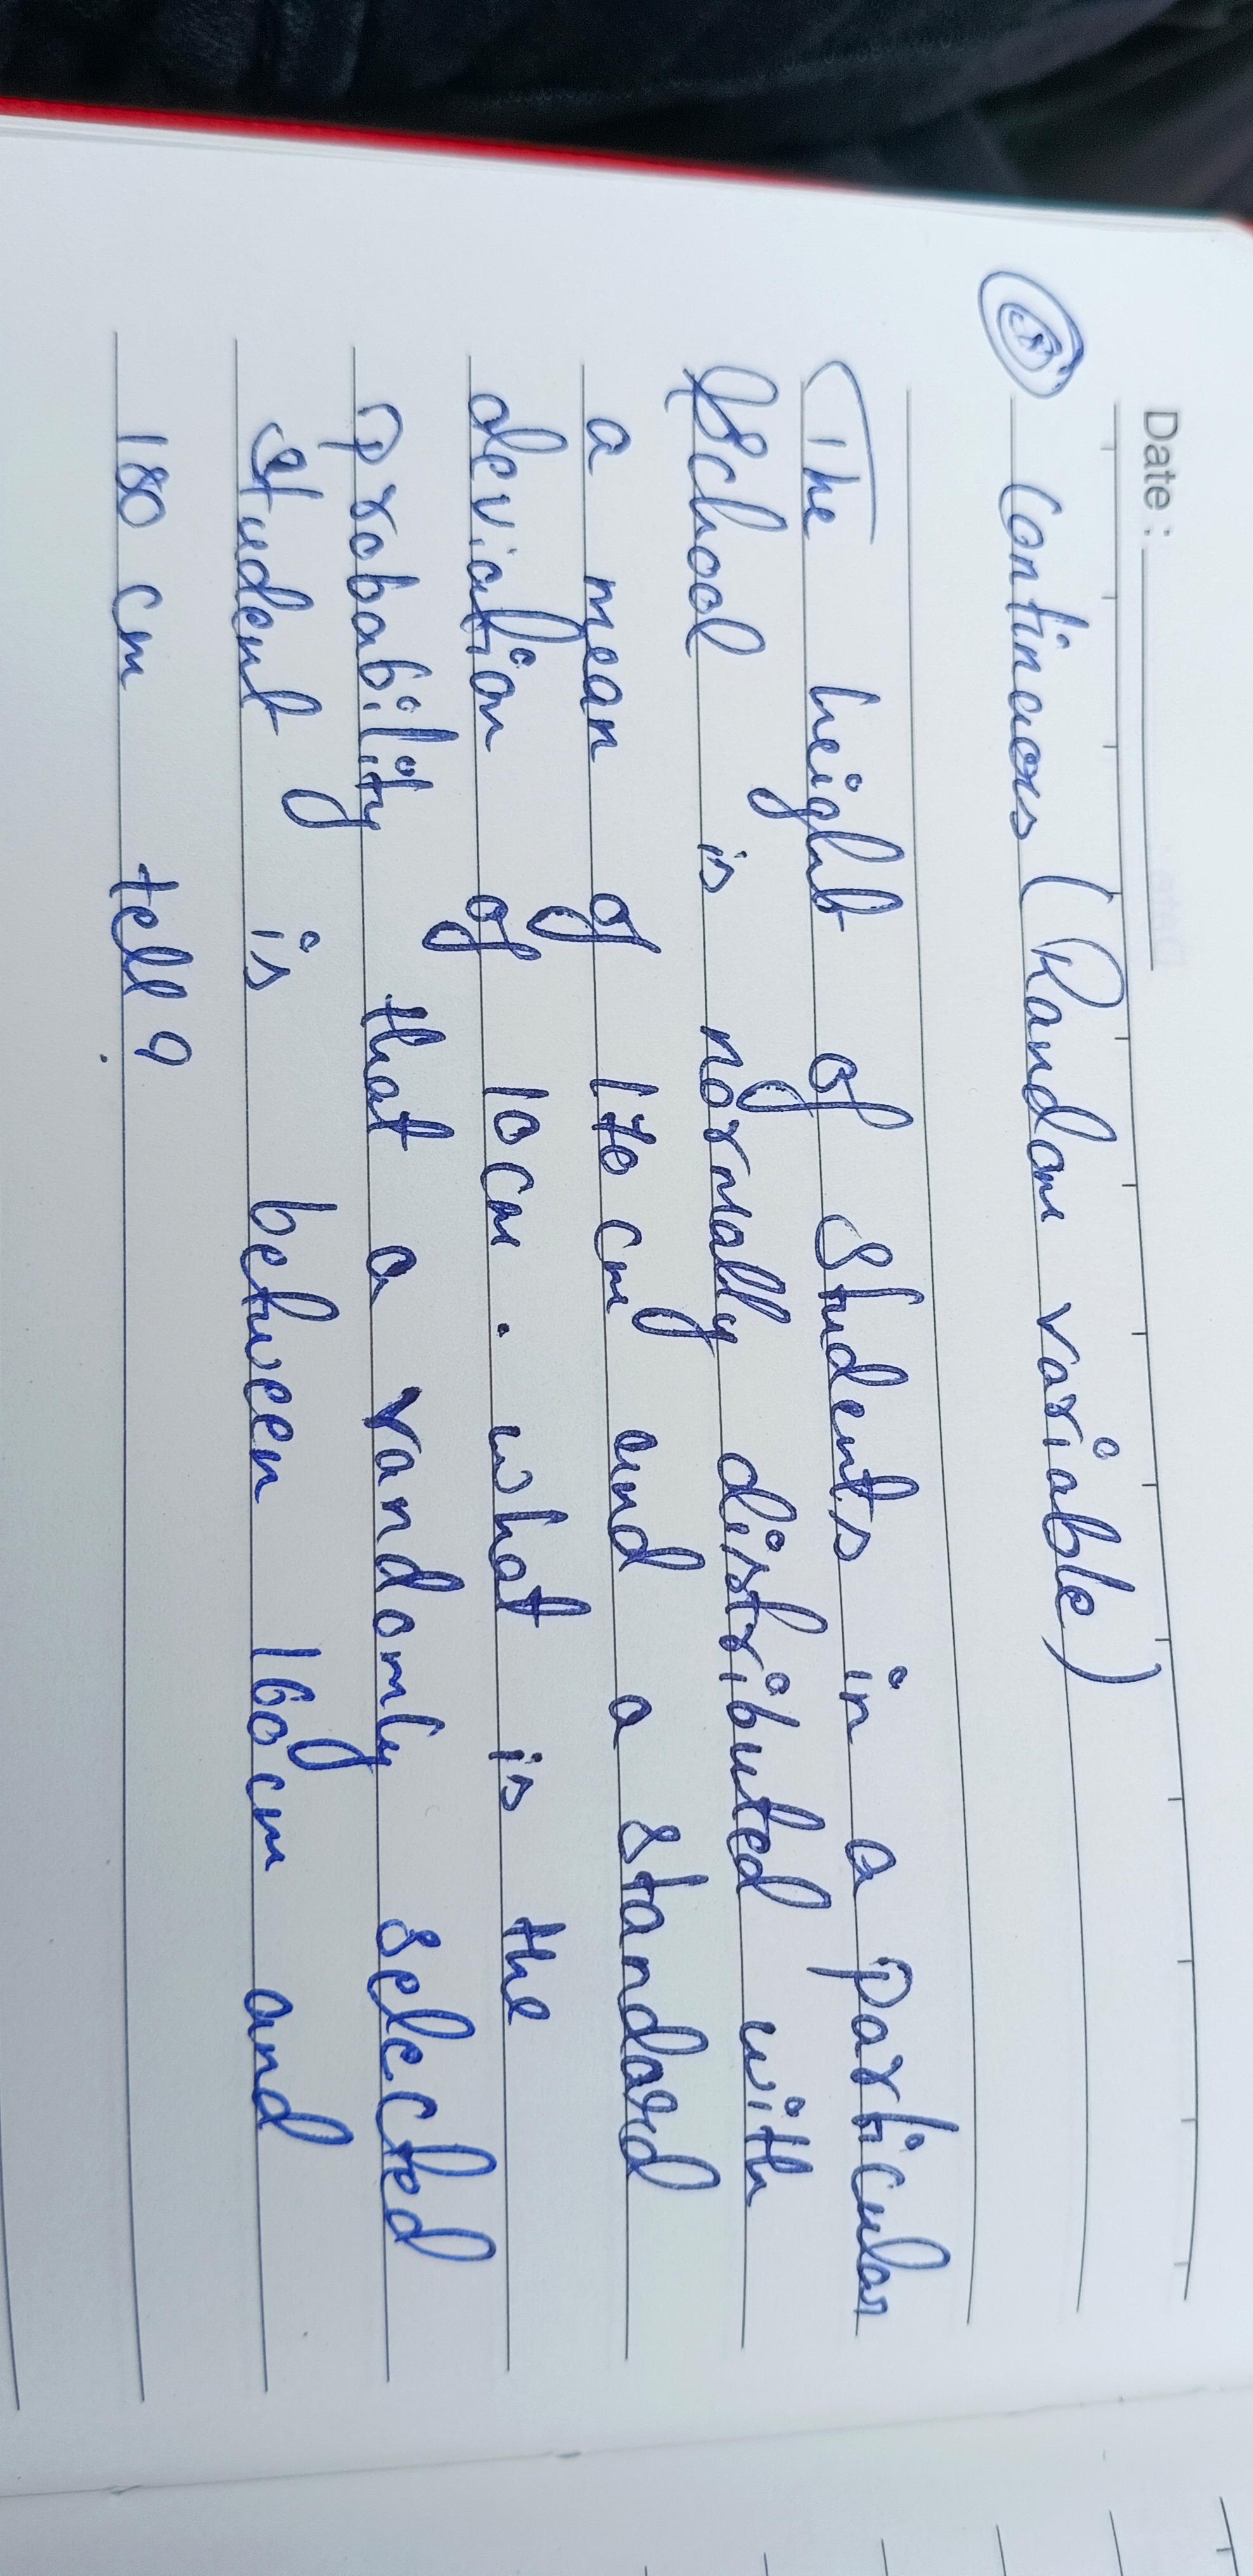 Date :
Continuous (Random variable)
The height of students in a particular
School is normally distributed with
a mean of 170 cm and a standard
deviation of 10 cm . what is the
probability that a randomly selected
student is between 160 cm and
180 cm tell ?